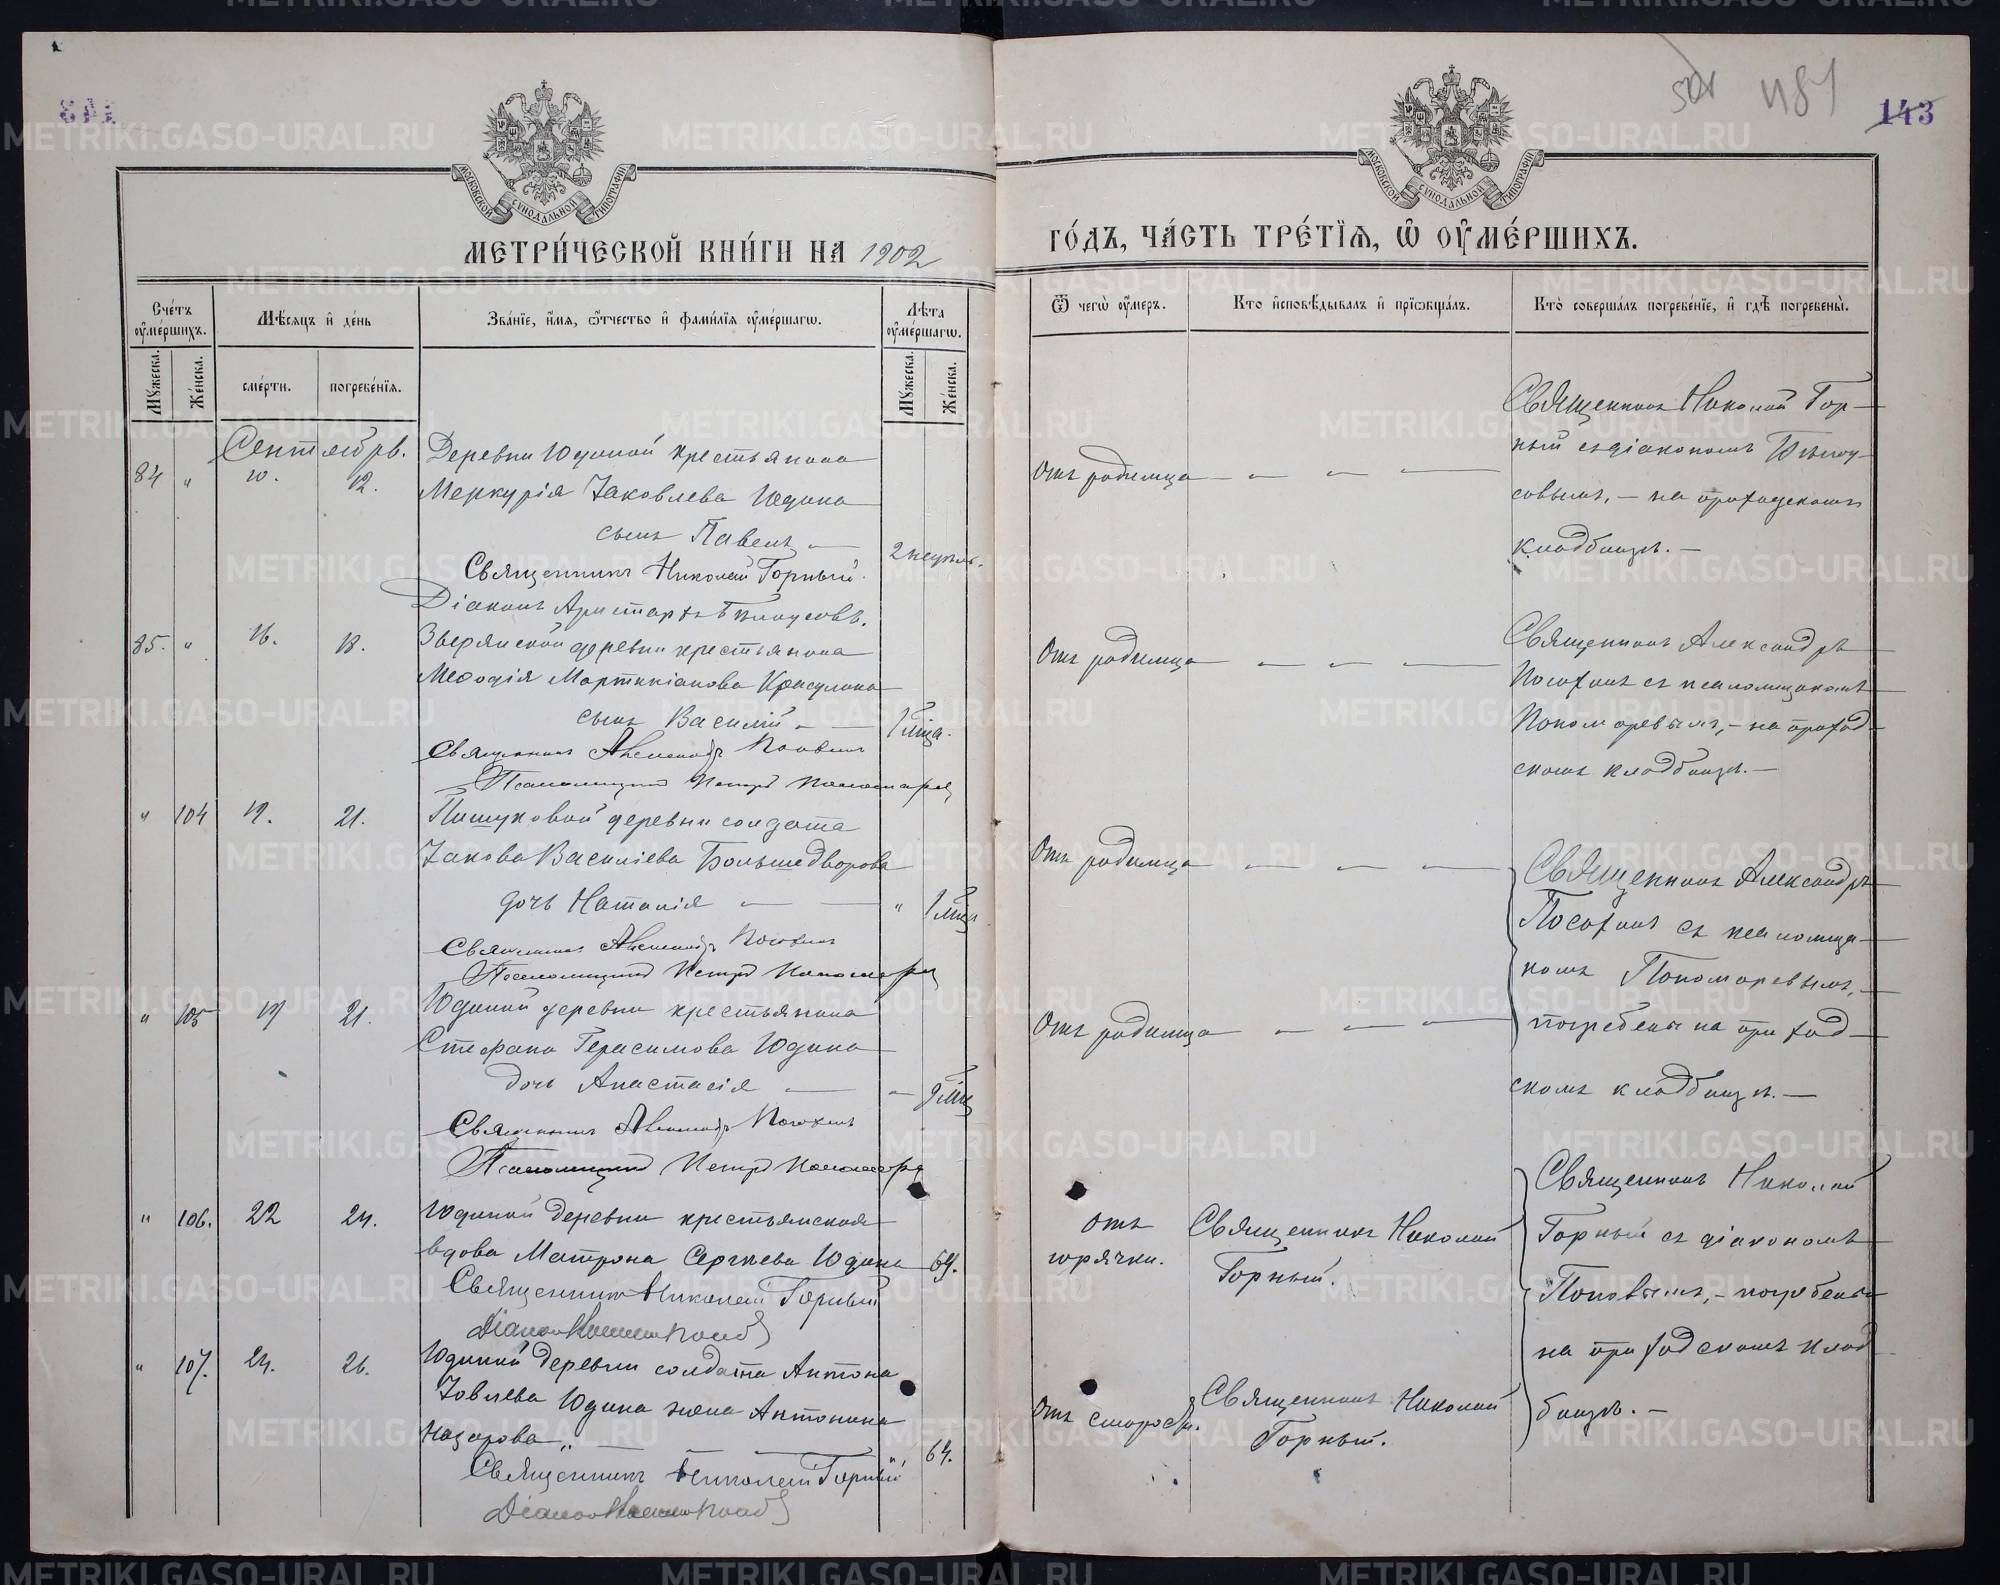 143
481
МОСКОВСКОЙ СУНОДАЛЬНОЙ ТИПОГРАФІИ
МОСКОВСКОЙ СУНОДАЛЬНОЙ ТИПОГРАФІИ
МЕТРИ́ЧЕСКОЙ КНИ́ГИ НА 1902
ГО́ДЪ, ЧА́СТЬ ТРЕ́ТІЯ, Ѿ ОУМЕ́РШИХЪ.
Сче́тъ оуме́ршихъ.
Му́жеска.
Же́нска.
Мѣ́сяцъ и де́нь
сме́рти.
погребе́нія.
Зва́ніе, и́мя, ѻтчество и фами́лія оуме́ршагѡ.
Лѣ́та оуме́ршагѡ.
Му́жеска.
Же́нска.
Ѿ чегѡ̀ оу́меръ.
Кто̀ исповѣ́дывалъ и пріѡбща́лъ.
Кто̀ соверша́лъ погребе́ніе, и гдѣ̀ погребены̀.
Сентябрь.
84 " 10. 12.
Деревни Юдиной крестьянина
Меркурія Іаковлева Юдина
сынъ Павелъ — 2 недѣль.
Священникъ Николай Горный.
Діаконъ Аристархъ Бѣлоусовъ.
Отъ родимца — — — —
Священникъ Николай Гор-
ный съ діакономъ Бѣлоу-
совымъ, — на приходскомъ
кладбищѣ. —
85. " 16. 18.
Зверянской деревни крестьянина
Меѳодія Мартиніанова Красулина
сынъ Василій — — 1 мца.
Священникъ Александръ Посохинъ
Псаломщикъ Петръ Пономарев
Отъ родимца — — — —
Священникъ Александръ
Посохинъ съ псаломщикомъ
Пономаревымъ, — на приход-
скомъ кладбищѣ. —
" 104 19. 21.
деревни солдата
Іакова Василіева Большедворова
дочь Наталія — — " 1 мца
Священникъ Александръ Посохинъ
Псаломщикъ Петръ Пономарев
Отъ родимца — — — —
Священникъ Александръ
Посохинъ съ псаломщи-
комъ Пономаревымъ, —
погребены на приход-
скомъ кладбищѣ. —
" 105 19 21.
Юдиной деревни крестьянина
Стефана Герасимова Юдина
дочь Анастасія — — 9 мца
Священникъ Александръ Посохинъ
Псаломщикъ Петръ Пономарев
Отъ родимца — — — —
" 106. 22 24.
Юдиной деревни крестьянская
вдова Матрона Сергѣева Юдина — 69.
Священникъ Николай Горный
Діаконъ Попов
Отъ горячки.
Священникъ Николай
Горный.
Священникъ Николай
Горный съ діакономъ
Поповымъ, — погребены
на приходскомъ клад-
бищѣ. —
" 107. 24. 26.
Юдиной деревни солдата Антона
Іовлева Юдина жена Антонина
Назарова „ — — — " 64.
Священникъ Николай Горный
Діаконъ Попов
Отъ старости.
Священникъ Николай
Горный.
METRIKI.GASO-URAL.RU